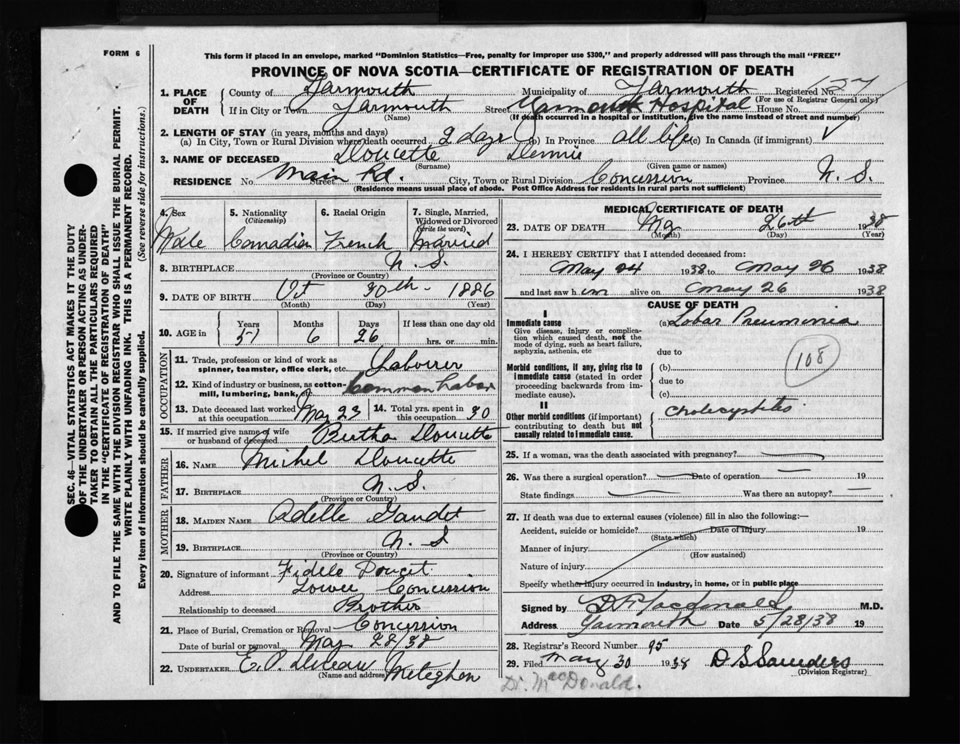 FORM 6
This form if placed in an envelope, marked "Dominion Statistics—Free, penalty for improper use $300," and properly addressed will pass through the mail "FREE"
PROVINCE OF NOVA SCOTIA—CERTIFICATE OF REGISTRATION OF DEATH
SEC. 46—VITAL STATISTICS ACT MAKES IT THE DUTY
OF THE UNDERTAKER OR PERSON ACTING AS UNDER-
TAKER TO OBTAIN ALL THE PARTICULARS REQUIRED
IN THE "CERTIFICATE OF REGISTRATION OF DEATH"
AND TO FILE THE SAME WITH THE DIVISION REGISTRAR WHO SHALL ISSUE THE BURIAL PERMIT.
WRITE PLAINLY WITH UNFADING INK. THIS IS A PERMANENT RECORD.
Every item of information should be carefully supplied. (See reverse side for instructions.)
1. PLACE OF DEATH
County of Yarmouth Municipality of Yarmouth Registered No.
(For use of Registrar General only)
If in City or Town Yarmouth Street Yarmouth Hospital House No.
(Name) (If death occurred in a hospital or institution, give the name instead of street and number)
2. LENGTH OF STAY (in years, months and days)
(a) In City, Town or Rural Division where death occurred 2 days (b) In Province all life (c) In Canada (if immigrant)
3. NAME OF DECEASED Doucette Dennis
(Surname) (Given name or names)
RESIDENCE No. Main Rd. Street City, Town or Rural Division Concession Province N. S.
(Residence means usual place of abode. Post Office Address for residents in rural parts not sufficient)
4. Sex Male
5. Nationality (Citizenship) Canadian
6. Racial Origin French
7. Single, Married, Widowed or Divorced (write the word) Married
8. BIRTHPLACE N. S.
(Province or Country)
9. DATE OF BIRTH Oct 30th 1886
(Month) (Day) (Year)
10. AGE in Years Months Days If less than one day old
57 6 26 hrs. or min.
OCCUPATION
11. Trade, profession or kind of work as spinner, teamster, office clerk, etc. Labourer
12. Kind of industry or business, as cotton-mill, lumbering, bank, Common Labor
13. Date deceased last worked at this occupation May 23
14. Total yrs. spent in this occupation 30
15. If married give name of wife or husband of deceased Bertha Doucette
FATHER
16. NAME Michel Doucette
17. BIRTHPLACE N. S.
(Province or Country)
MOTHER
18. MAIDEN NAME Adelle Gaudet
19. BIRTHPLACE N. S
(Province or Country)
20. Signature of informant Fidele Doucet
Address Lower Concession
Relationship to deceased Brother
21. Place of Burial, Cremation or Removal Concession
Date of burial or removal May 28/38
22. UNDERTAKER Meteghan
(Name and address)
MEDICAL CERTIFICATE OF DEATH
23. DATE OF DEATH May 26th 1938
(Month) (Day) (Year)
24. I HEREBY CERTIFY that I attended deceased from:
May 24 1938 to May 26 1938
and last saw him alive on May 26 1938
CAUSE OF DEATH
I
Immediate cause (a) Lobar Pneumonia
Give disease, injury or complication which caused death, not the mode of dying, such as heart failure, asphyxia, asthenia, etc
due to
108
Morbid conditions, if any, giving rise to immediate cause (stated in order proceeding backwards from immediate cause).
(b)
due to
(c)
II
Other morbid conditions (if important) contributing to death but not causally related to immediate cause.
Cholecystitis
25. If a woman, was the death associated with pregnancy?
26. Was there a surgical operation? Date of operation 19
State findings Was there an autopsy?
27. If death was due to external causes (violence) fill in also the following:—
Accident, suicide or homicide? Date of Injury 19
(State which)
Manner of injury
(How sustained)
Nature of injury
Specify whether injury occurred in industry, in home, or in public place
Signed by Macdonald M.D.
Address Yarmouth Date 5/28/38 19
28. Registrar's Record Number 95
29. Filed May 30 1938 D S Saunders
(Division Registrar)
Dr. MacDonald.